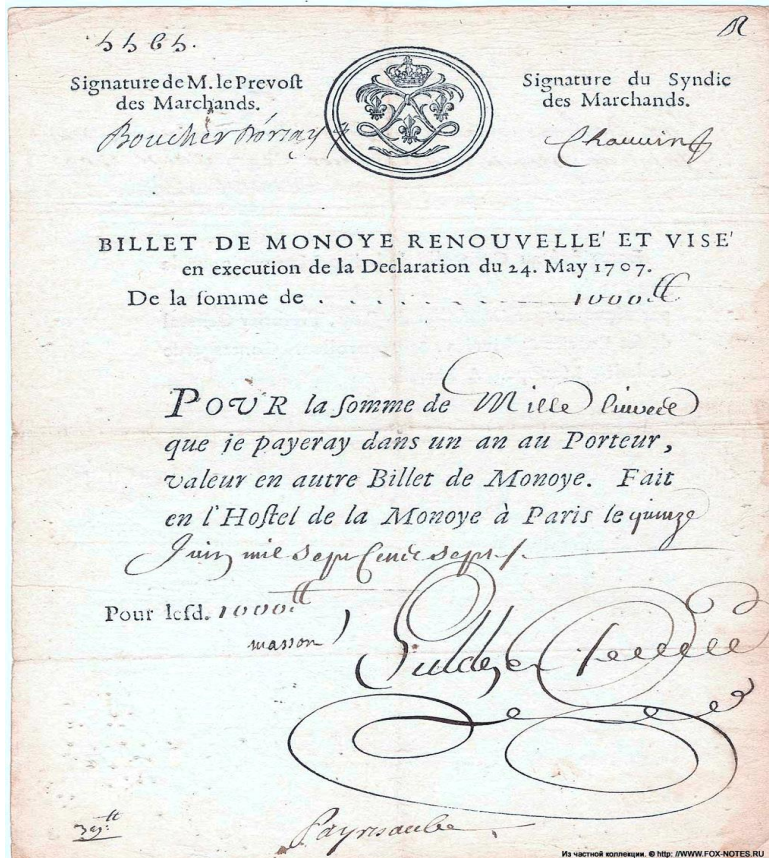 Signature de M. le Prevoſt
des Marchands.
Boucher Dorſay
Signature du Syndic
des Marchands.
Chauvin
BILLET DE MONOYE RENOUVELLE' ET VISE'
en execution de la Declaration du 24. May 1707.
De la ſomme de . . . . . . . . . 1000ˡˡ
POUR la ſomme de Mille livres
que je payeray dans un an au Porteur,
valeur en autre Billet de Monoye. Fait
en l'Hoſtel de la Monoye à Paris le quinze
Juin mil sept Cent sept
Pour leſd. 1000ˡˡ
masson
Из частной коллекции. © http: //WWW.FOX-NOTES.RU